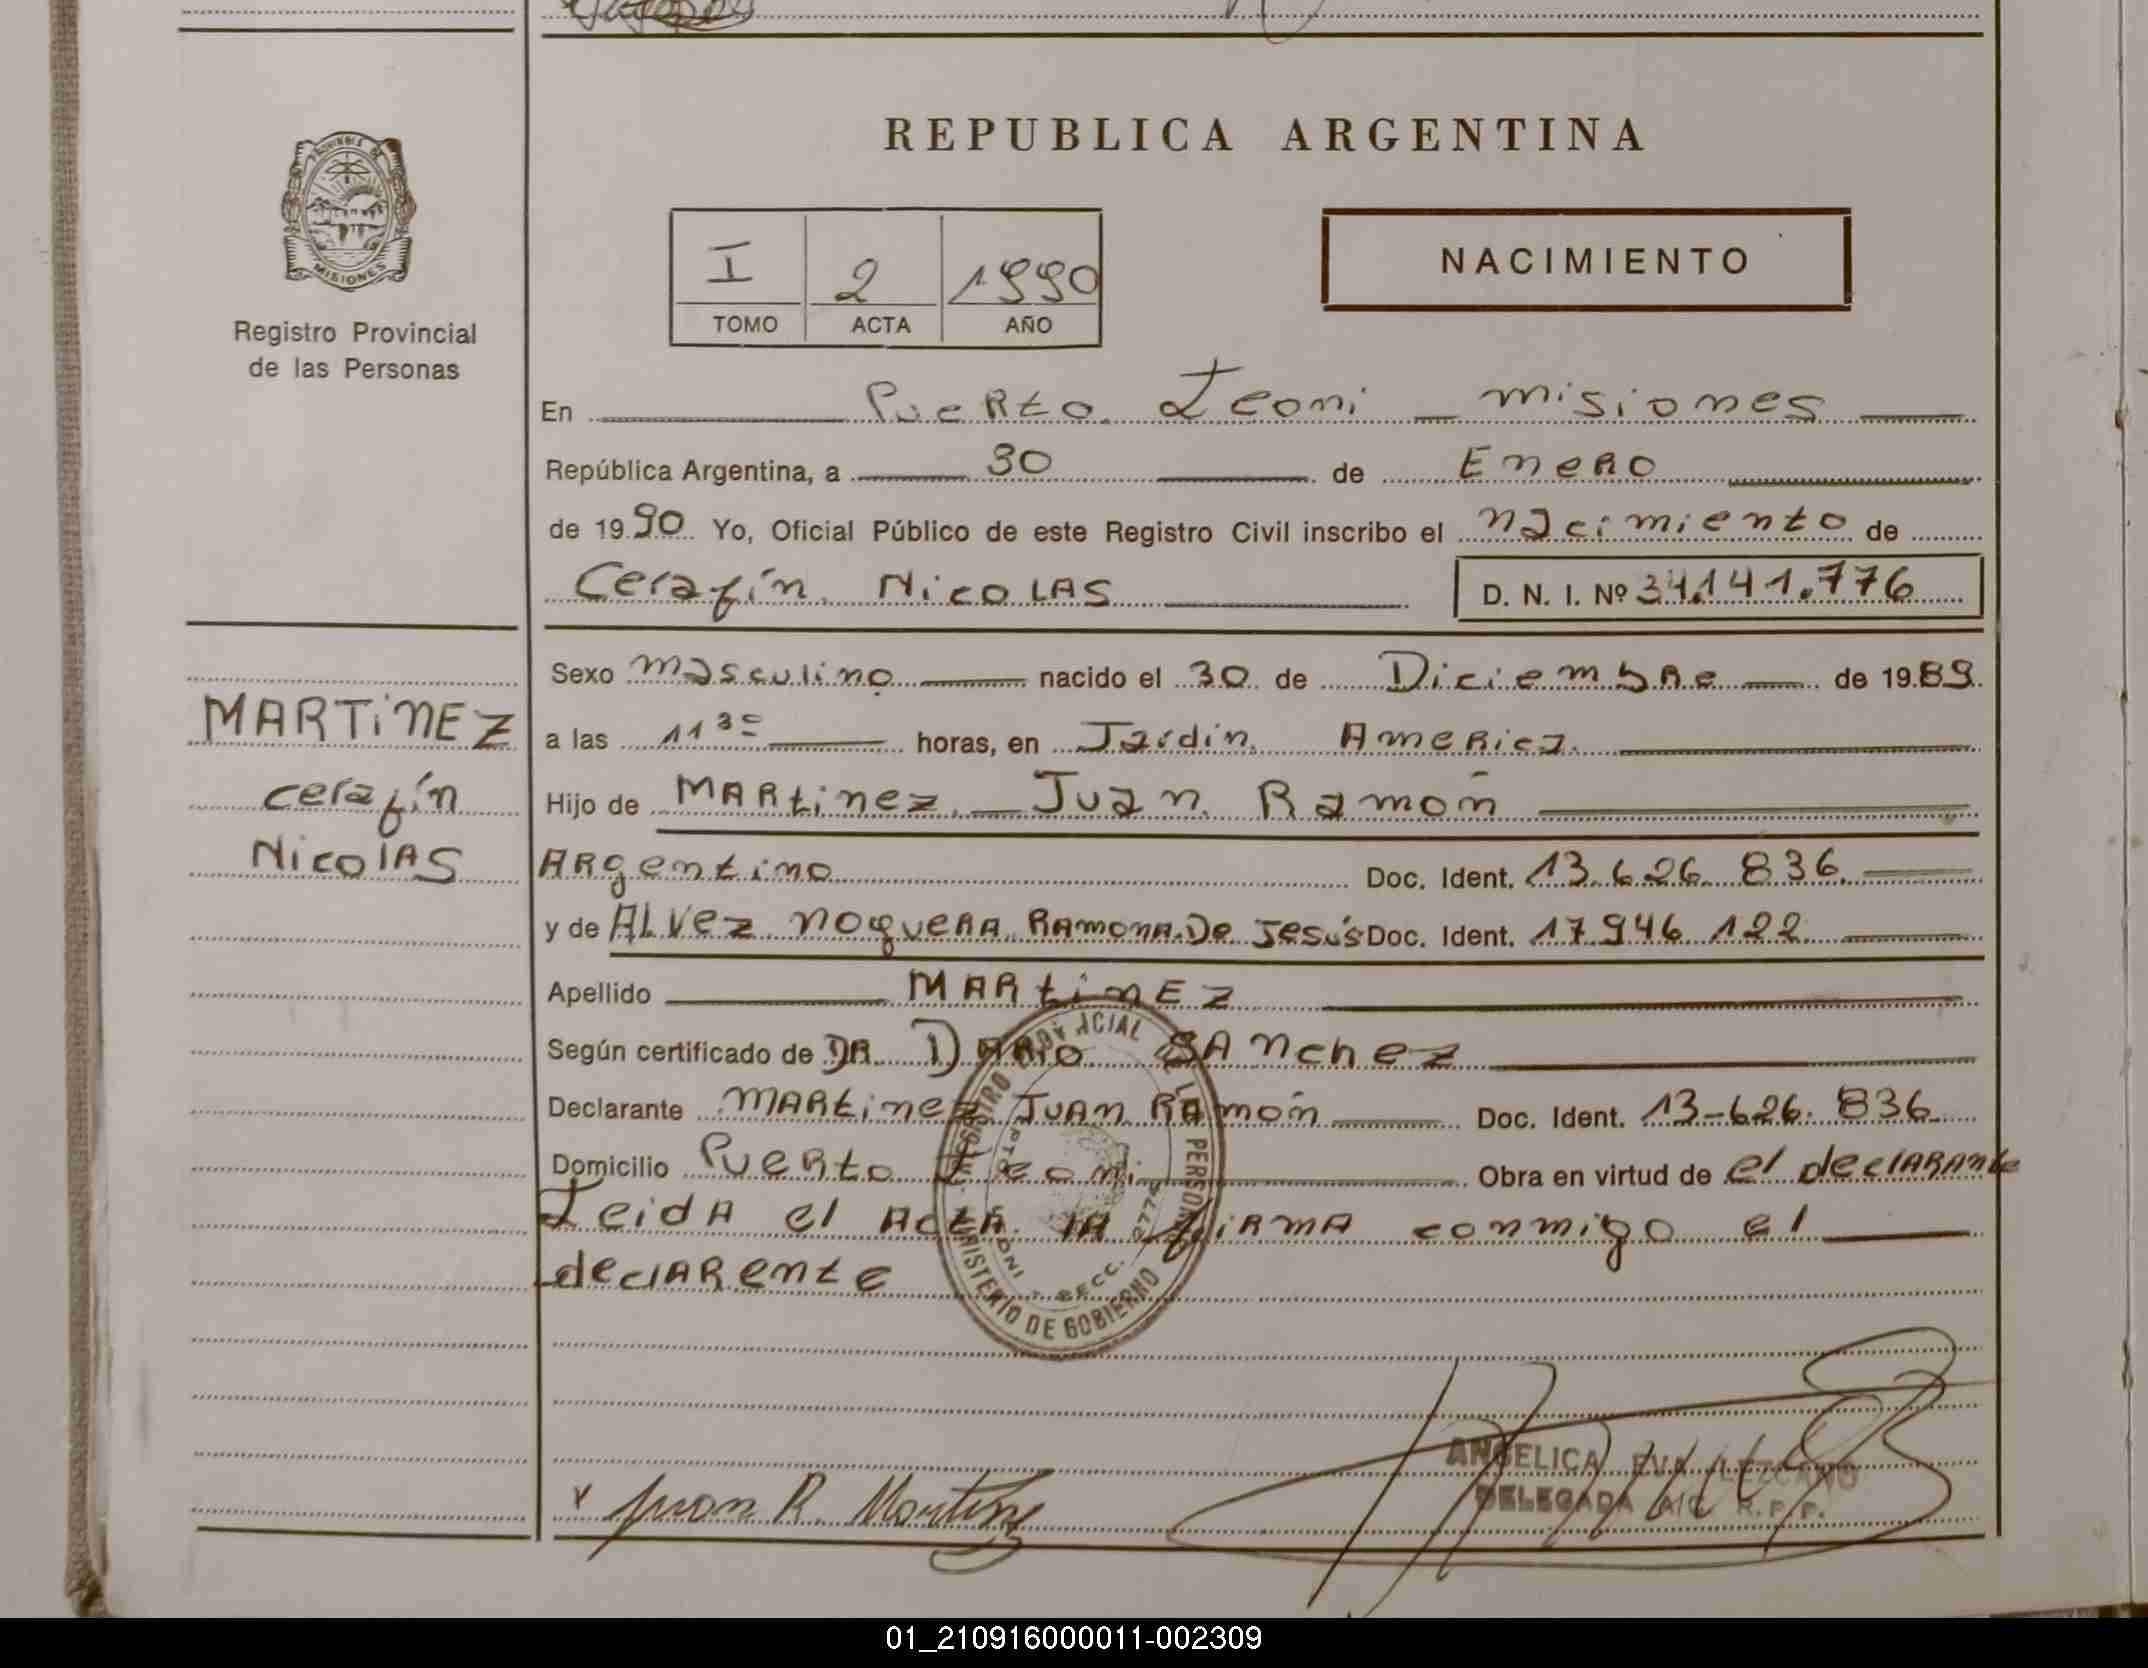 REPUBLICA ARGENTINA
MISIONES
Registro Provincial
de las Personas
I 2 1990
TOMO ACTA AÑO
NACIMIENTO
En Puerto Leoni - misiones
República Argentina, a 30 de Enero
de 1990 Yo, Oficial Público de este Registro Civil inscribo el nacimiento de
Cerafín Nicolas D. N. I. Nº 34.141.776
MARTiNEZ
cerafín
NicolAS
Sexo masculino nacido el 30 de Diciembre de 1989
a las 11 30 horas, en Jardin America
Hijo de MARtinez Juan Ramón
ARgentino Doc. Ident. 13.626.836
y de ALVez noguera RAmona De Jesús Doc. Ident. 17 946 122
Apellido MARtiNEZ
Según certificado de DR DARio SANchez
Declarante MARtinez JUAN RAmón Doc. Ident. 13-626.836
Domicilio Puerto Leoni Obra en virtud de el declarante
Leida el Acta la firma conmigo el
declarente
MINISTERIO DE GOBIERNO
SECC. 2774
Juan R. Martinez
ANGELICA EVA LEZCANO
DELEGADA A/C R.P.P.
01_210916000011-002309